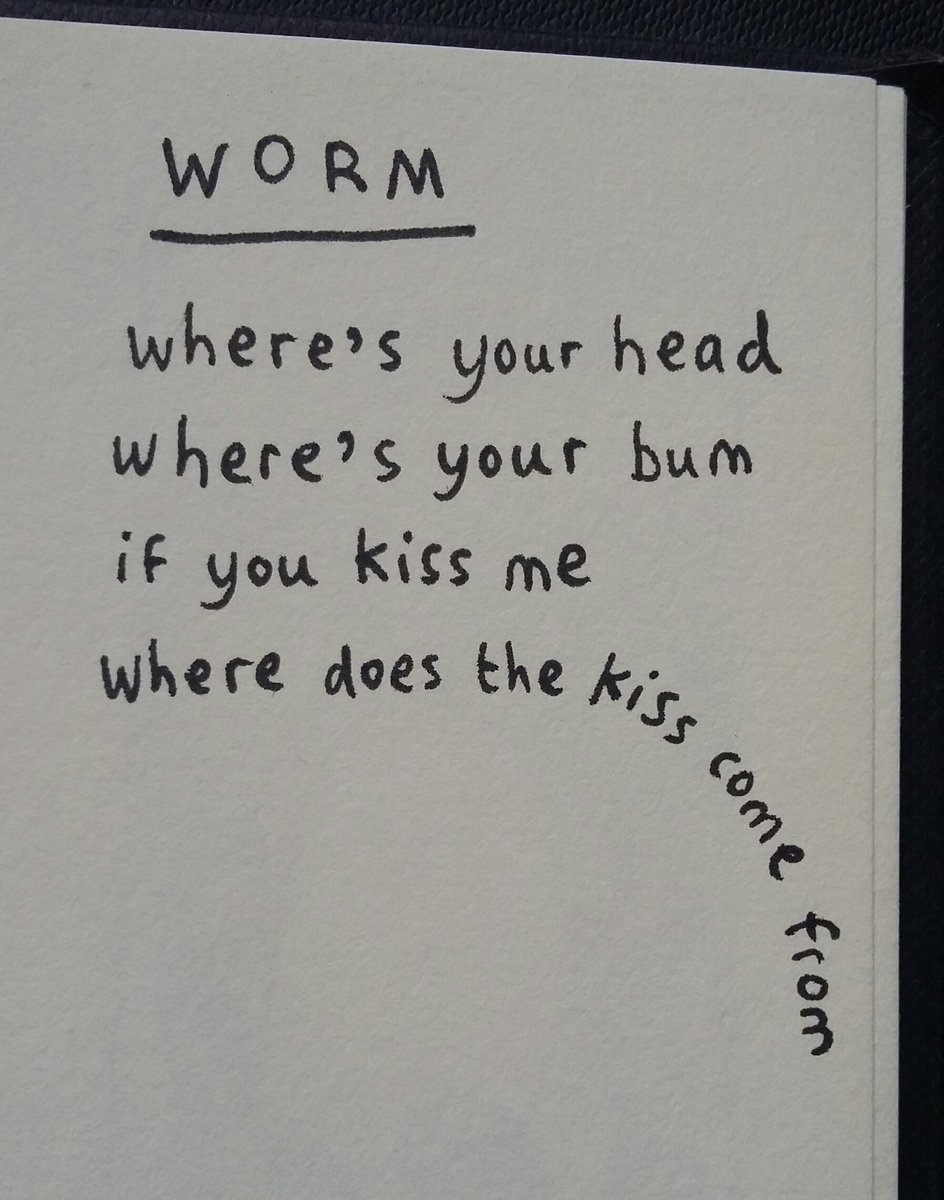 WORM
where's your head
where's your bum
if you kiss me
where does the kiss come from